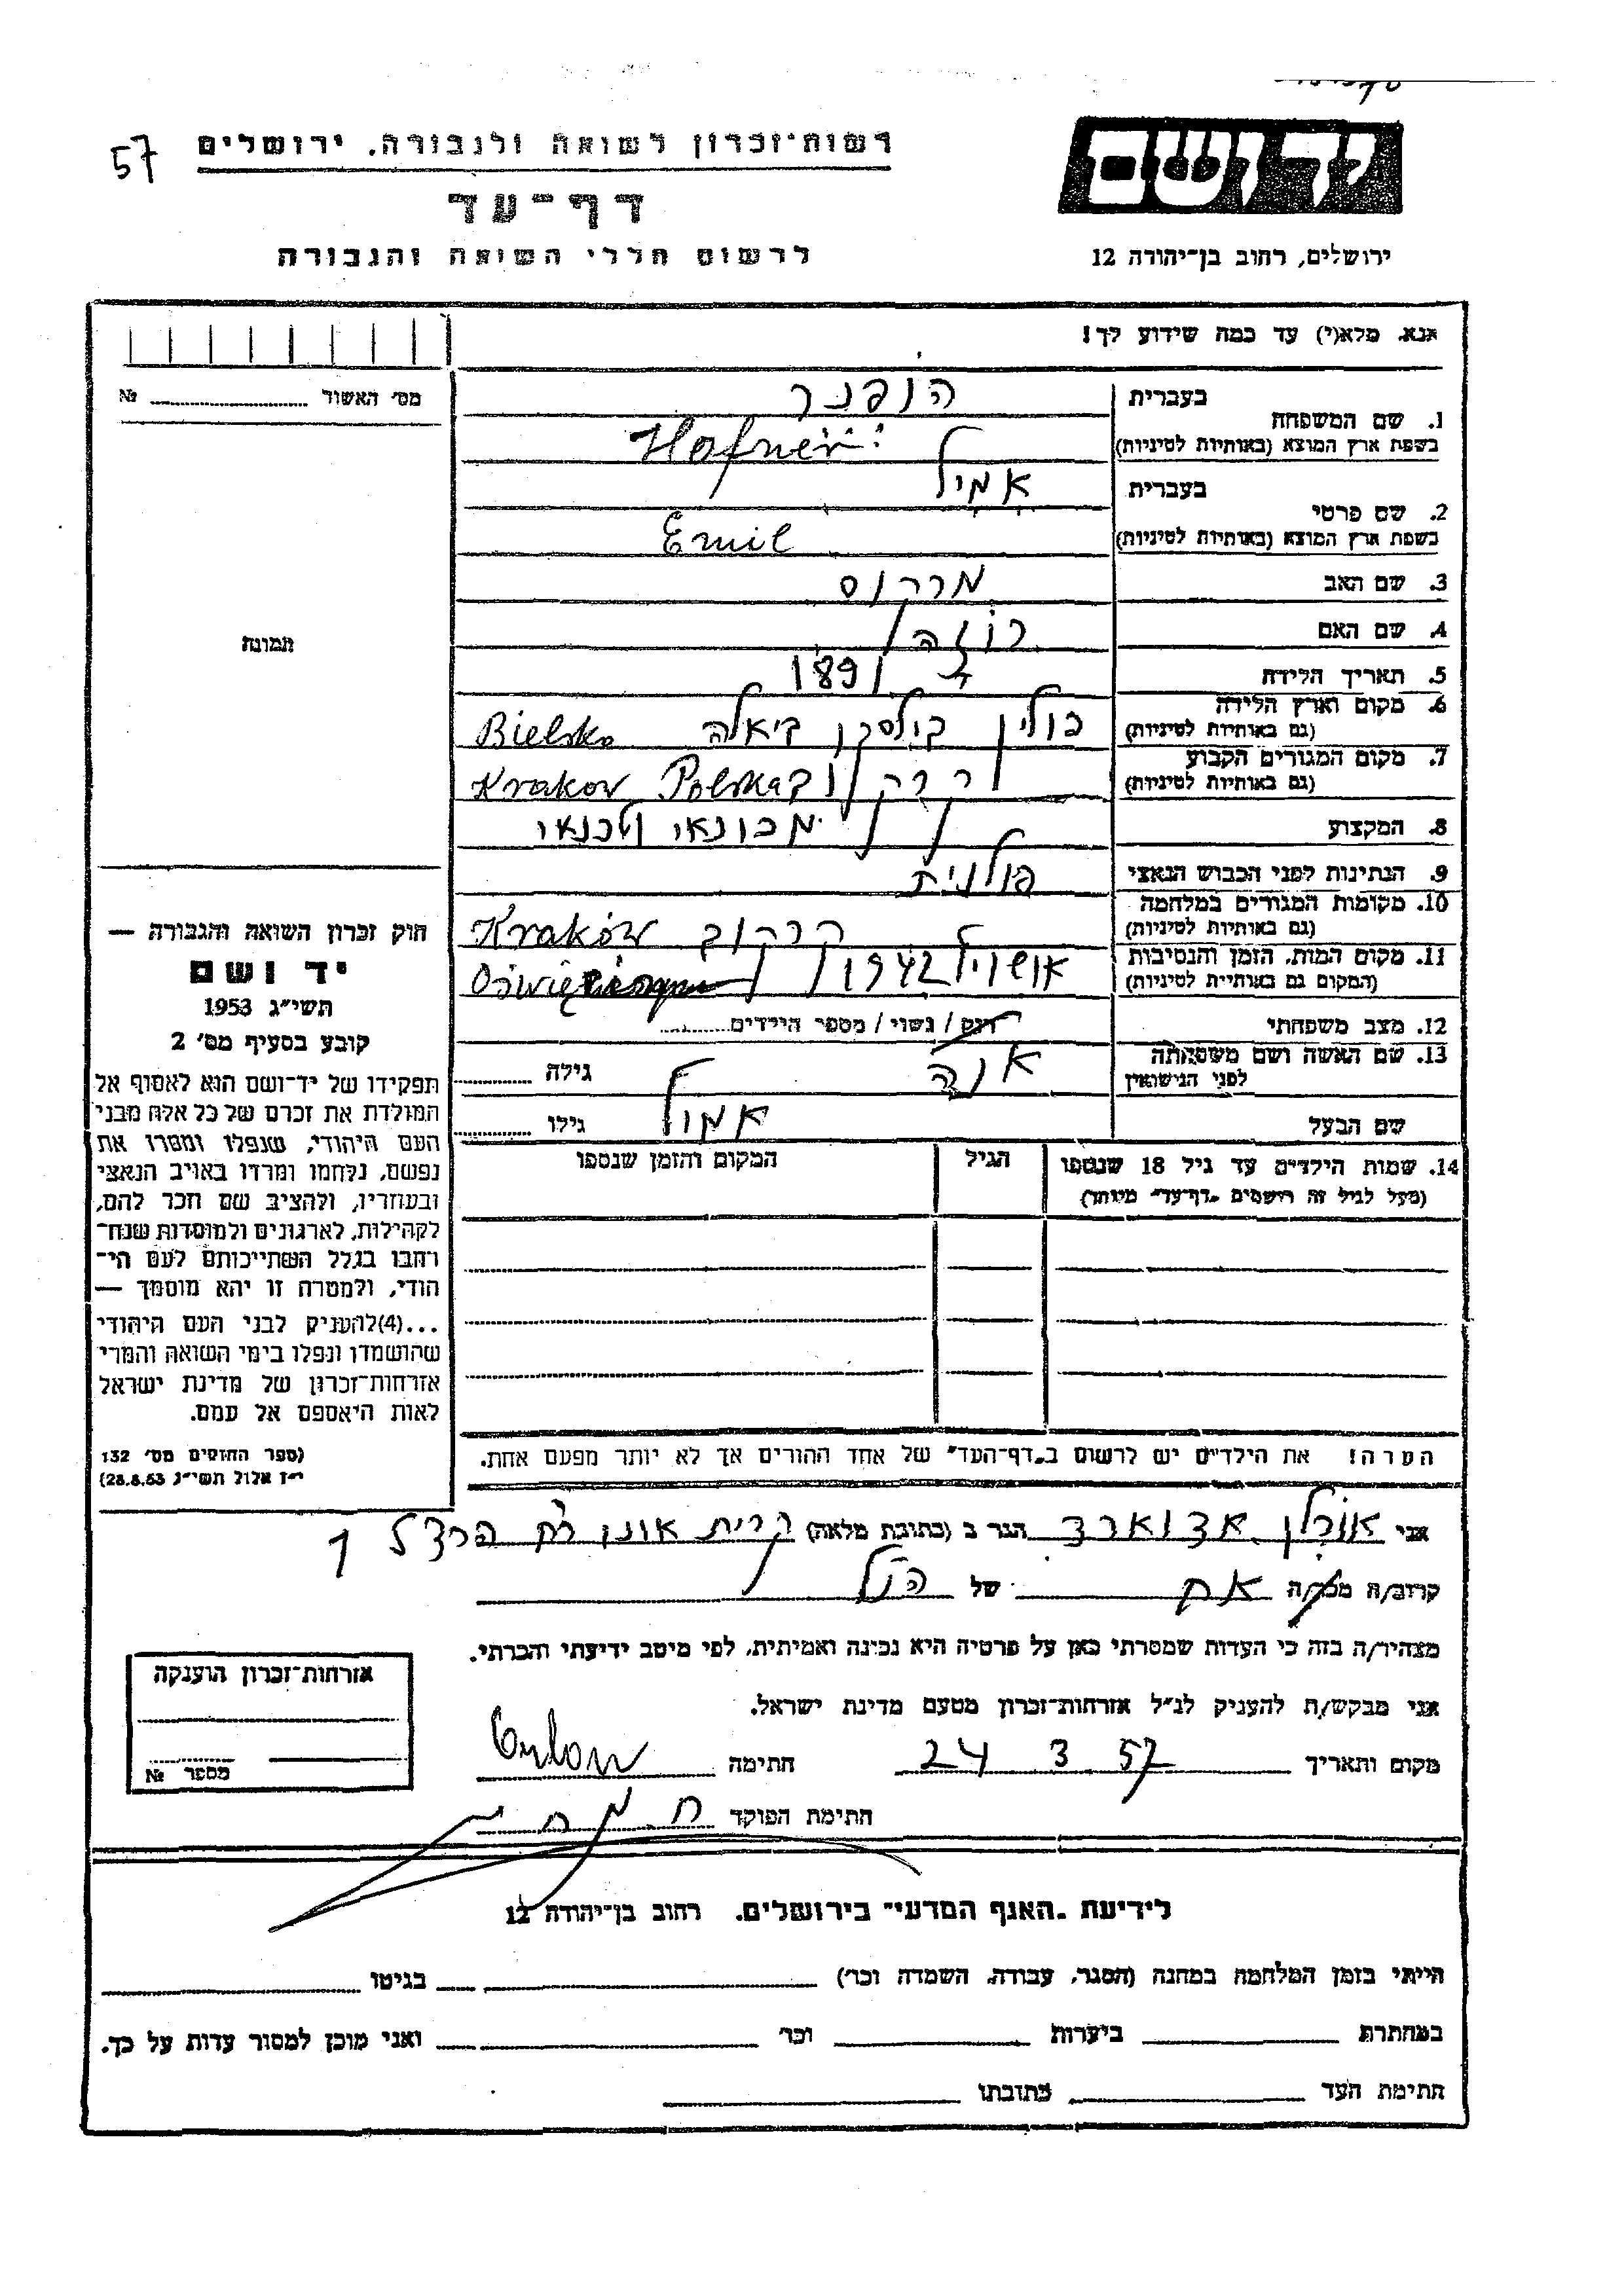 57
רשות־זכרון לשואה ולגבורה, ירושלים
דף־עד
לרשום חללי השואה והגבורה
יד ושם
ירושלים, רחוב בן־יהודה 12
אנא, מלא(י) עד כמה שידוע לך!
מס׳ האשור № 
1. שם המשפחה בעברית הופנר
בשפת ארץ המוצא (באותיות לטיניות) Hofner
2. שם פרטי בעברית אמיל
בשפת ארץ המוצא (באותיות לטיניות) Emil
3. שם האב מרקוס
4. שם האם רוזה
5. תאריך הלידה 1891
6. מקום וארץ הלידה (גם באותיות לטיניות) פולין ביאלה Bielsko
7. מקום המגורים הקבוע (גם באותיות לטיניות) Krakow Polska
8. המקצוע מכונאי
9. הנתינות לפני הכבוש הנאצי פולנית
10. מקומות המגורים במלחמה (גם באותיות לטיניות) קרקוב Kraków
11. מקום המות, הזמן והנסיבות (המקום גם באותיות לטיניות) 1942
12. מצב משפחתי רוק / נשוי / מספר הילדים
13. שם האשה ושם משפחתה לפני הנישואין אנה גילה
שם הבעל אמיל גילו
14. שמות הילדים עד גיל 18 שנספו
(מעל לגיל זה רושמים „דף־עד״ מיוחד)
הגיל
המקום והזמן שנספו
הערה! את הילדים יש לרשום ב„דף־העד״ של אחד ההורים אך לא יותר מפעם אחת.
תמונה
חוק זכרון השואה והגבורה —
יד ושם
תשי״ג 1953
קובע בסעיף מס׳ 2
תפקידו של יד־ושם הוא לאסוף אל
המולדת את זכרם של כל אלה מבני
העם היהודי, שנפלו ומסרו את
נפשם, נלחמו ומרדו באויב הנאצי
ובעוזריו, ולהציב שם וזכר להם,
לקהילות, לארגונים ולמוסדות שנח־
רבו בגלל השתייכותם לעם הי־
הודי, ולמטרה זו יהא מוסמך —
...(4)להעניק לבני העם היהודי
שהושמדו ונפלו בימי השואה והמרי
אזרחות־זכרון של מדינת ישראל
לאות היאספם אל עמם.
(ספר החוקים מס׳ 132
י״ז אלול תשי״ג 28.8.53)
אני אורלן אדוארד הגר ב (כתובת מלאה) קרית אונו רח הרצל 1
קרוב/ה מכר/ה אח של הנ״ל
מצהיר/ה בזה כי העדות שמסרתי כאן על פרטיה היא נכונה ואמיתית, לפי מיטב ידיעתי והכרתי.
אני מבקש/ת להעניק לנ״ל אזרחות־זכרון מטעם מדינת ישראל.
מקום ותאריך 24 3 57 חתימה Orlon
חתימת הפוקד
אזרחות־זכרון הוענקה
מספר №
לידיעת „האגף המדעי״ בירושלים, רחוב בן־יהודה 12
הייתי בזמן המלחמה במחנה (הסגר, עבודה, השמדה וכו׳) בגיטו
במחתרת ביערות וכו׳ ואני מוכן למסור עדות על כך.
חתימת העד כתובתו